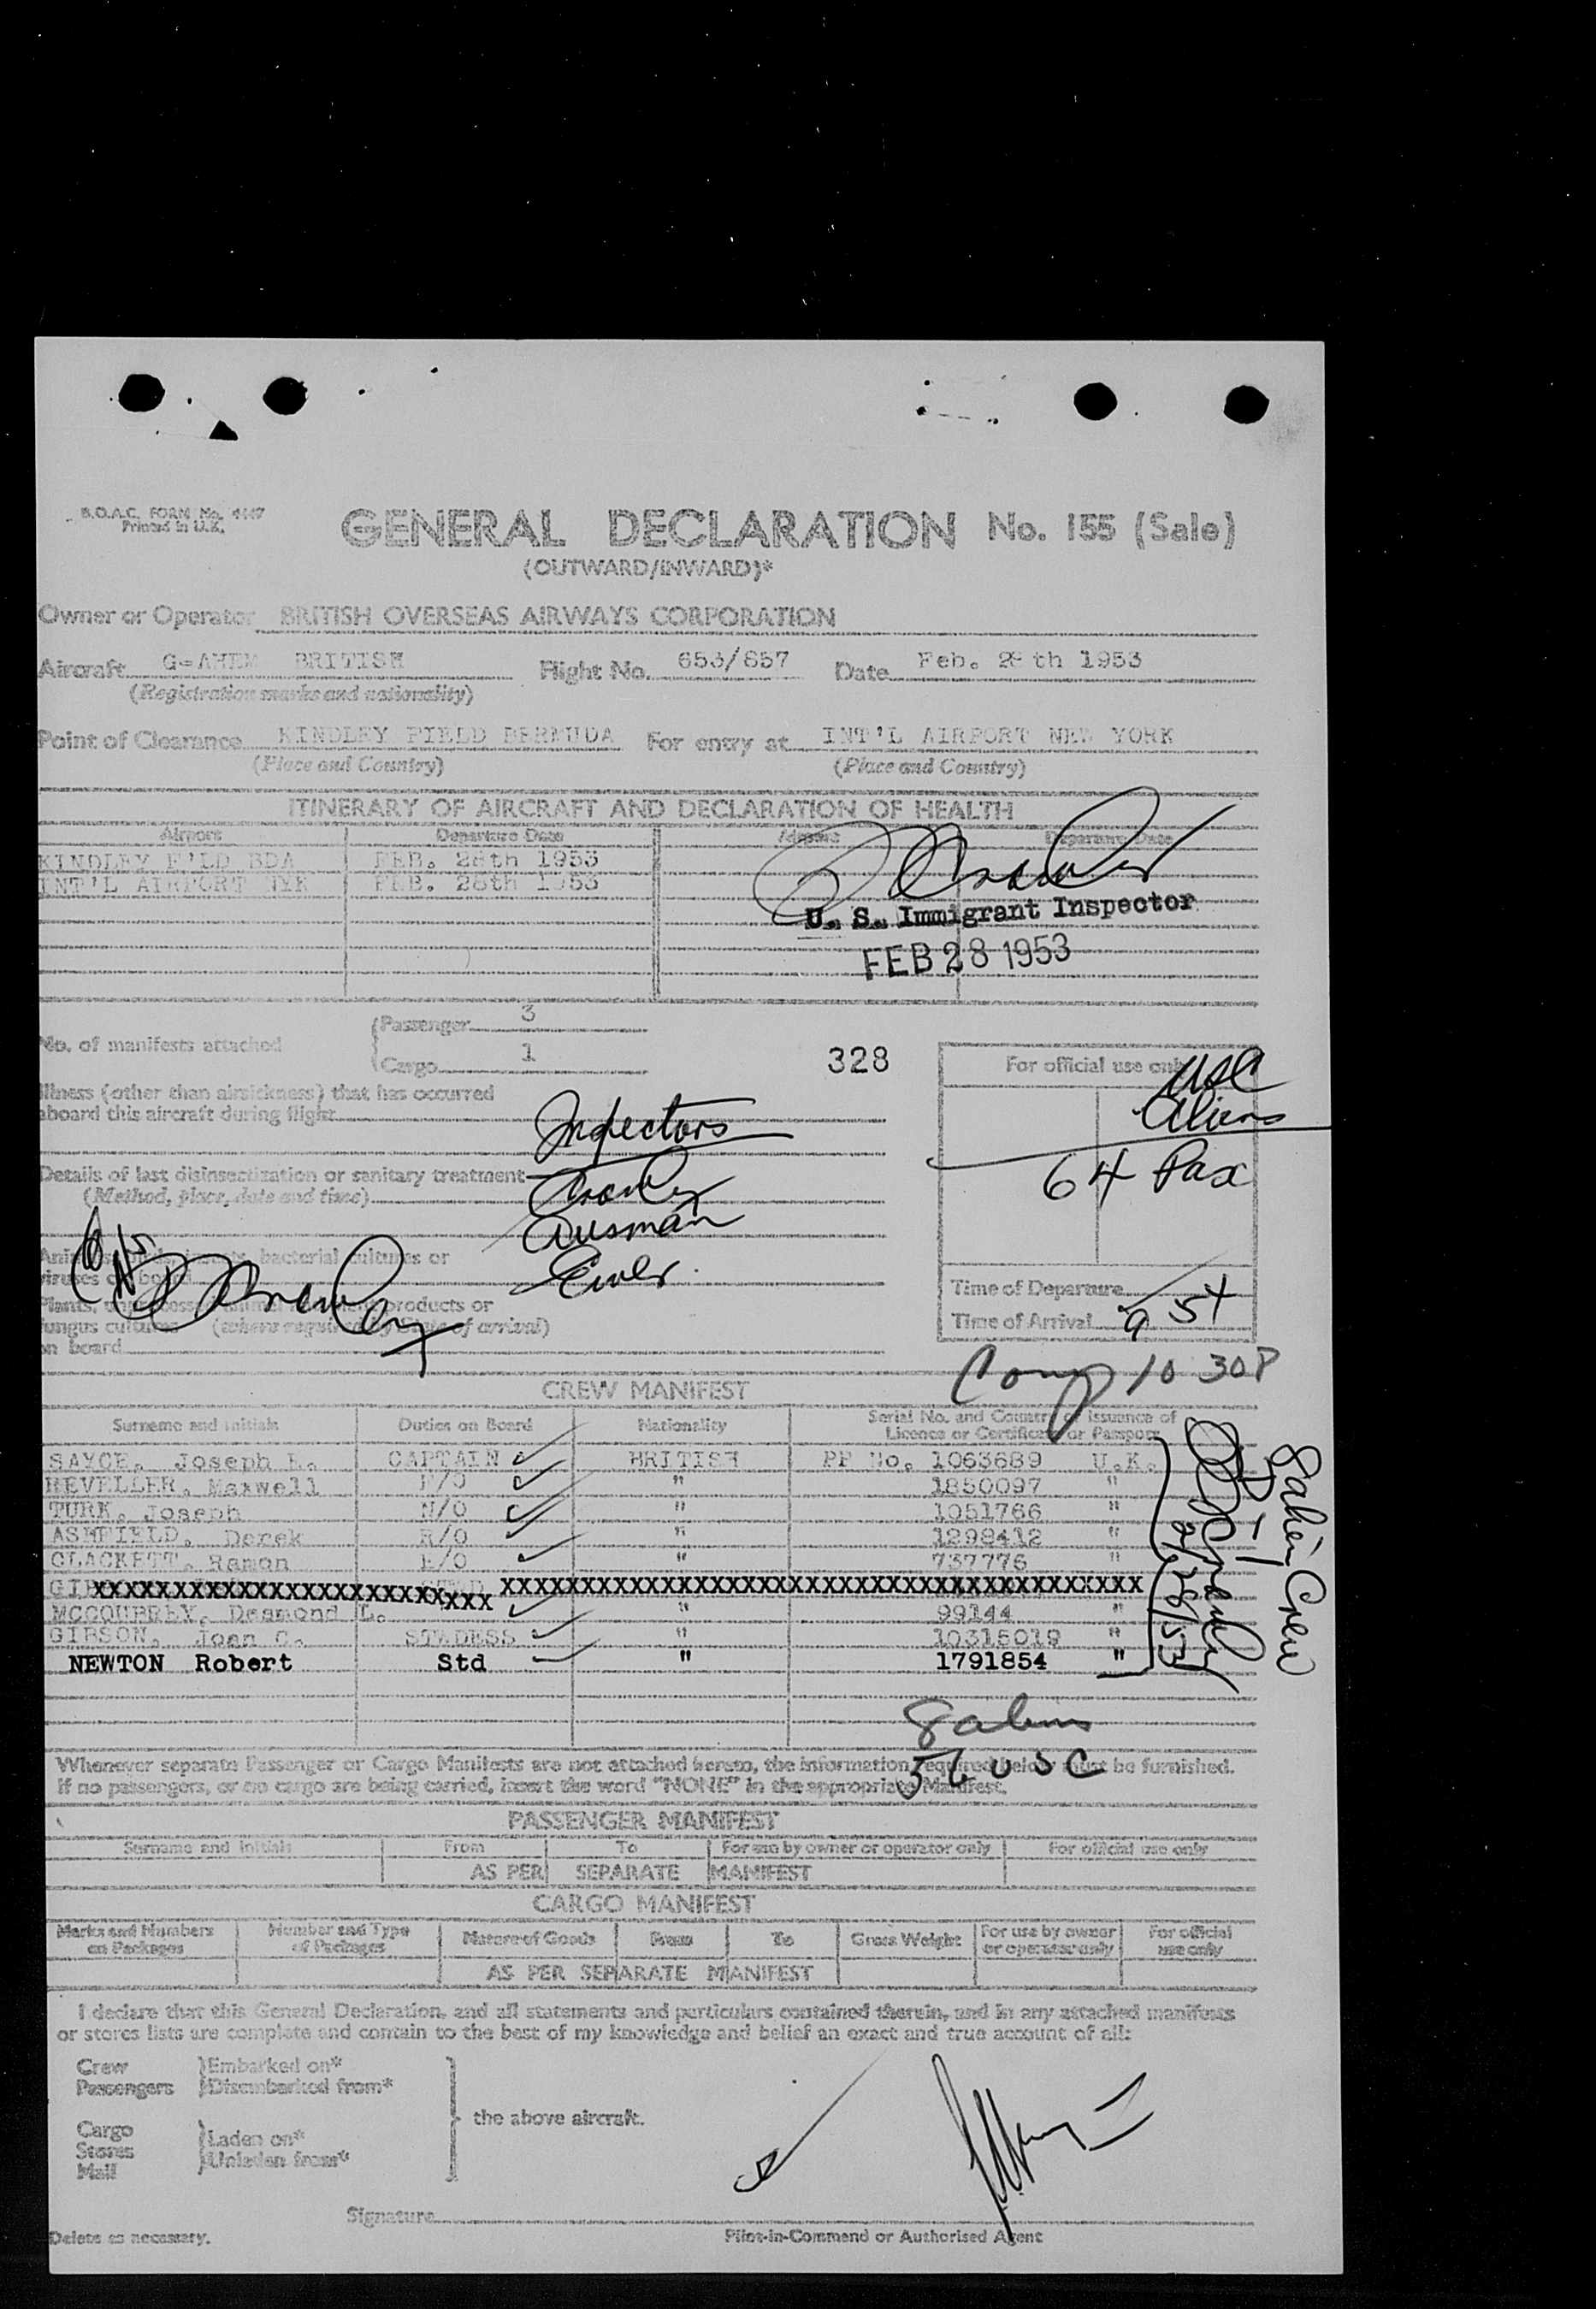 B.O.A.C. FORM No. 4447
Printed in U.K.
GENERAL DECLARATION No. 155 (Sale)
(OUTWARD/INWARD)*
Owner or Operator BRITISH OVERSEAS AIRWAYS CORPORATION
Aircraft G-AHEM BRITISH Flight No. 653/657 Date Feb. 28th 1953
(Registration marks and nationality)
Point of Clearance KINDLEY FIELD BERMUDA For entry at INT'L AIRPORT NEW YORK
(Place and Country) (Place and Country)
ITINERARY OF AIRCRAFT AND DECLARATION OF HEALTH
Airport Departure Date Airport Departure Date
KINDLEY F'LD BDA FEB. 28th 1953
INT'L AIRPORT NYK FEB. 28th 1953
U. S. Immigrant Inspector
FEB 28 1953
No. of manifests attached
Passenger 3
Cargo 1
328
For official use only
USC
Aliens
64 Pax
Illness (other than airsickness) that has occurred
aboard this aircraft during flight
Inspectors
Details of last disinsectization or sanitary treatment
(Method, place, date and time)
Ausman
bacterial cultures or
viruses on board
Plants, products or
fungus cultures (where required by State of arrival)
on board
Time of Departure
Time of Arrival 9 54
Comp 10 30P
CREW MANIFEST
Surname and initials Duties on Board Nationality Serial No. and Country of issuance of
Licence or Certificate or Passport
SAYCE, Joseph E. CAPTAIN BRITISH PP No. 1063689 U.K.
REVELLER, Maxwell F/O " 1850097 "
TURK, Joseph N/O " 1051766 "
ASHFIELD, Derek R/O " 1298412 "
CLACKETT, Ramon E/O " 737776 "
MCCOUBREY, Desmond L. " 99144 "
GIBSON, Joan C. STWDESS " 10315019 "
NEWTON Robert Std " 1791854 "
8 alien Crew
2/28/53
8 aliens
56 USC
Whenever separate Passenger or Cargo Manifests are not attached hereto, the information required below must be furnished.
If no passengers, or no cargo are being carried, insert the word "NONE" in the appropriate Manifest.
PASSENGER MANIFEST
Surname and initials From To For use by owner or operator only For official use only
AS PER SEPARATE MANIFEST
CARGO MANIFEST
Marks and Numbers on Packages Number and Type of Packages Nature of Goods From To Gross Weight For use by owner or operator only For official use only
AS PER SEPARATE MANIFEST
I declare that this General Declaration, and all statements and particulars contained therein, and in any attached manifests
or stores lists are complete and contain to the best of my knowledge and belief an exact and true account of all:
Crew Embarked on*
Passengers Disembarked from*
the above aircraft.
Cargo
Stores Laden on*
Mail Unladen from*
Signature
Pilot-in-Command or Authorised Agent
Delete as necessary.